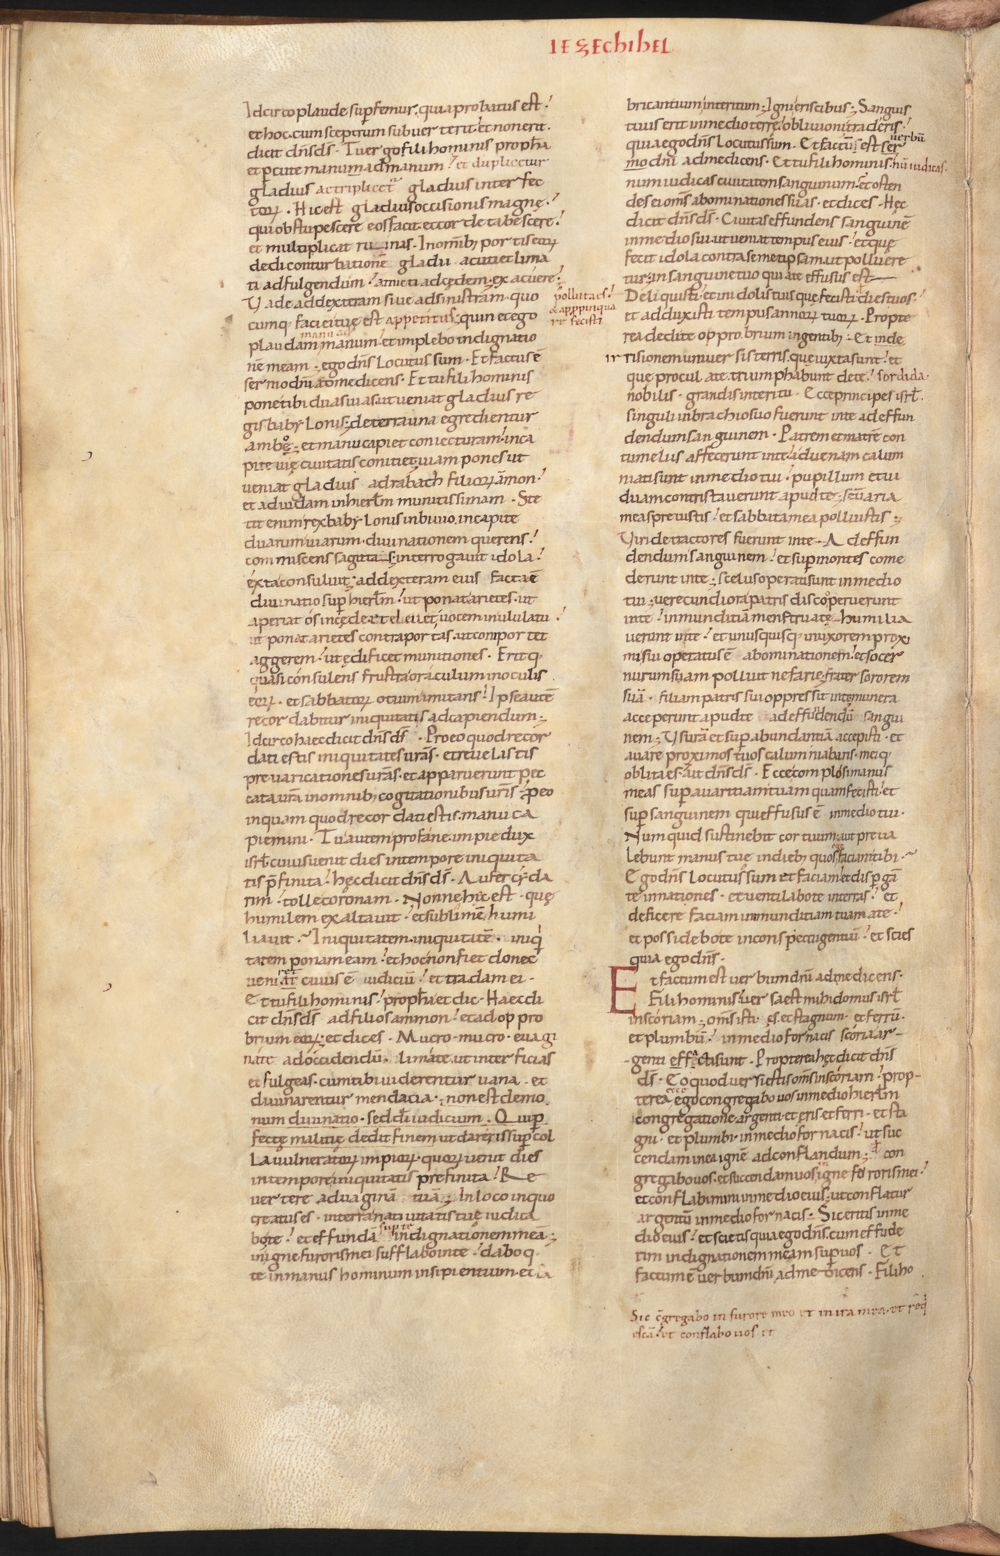 IEZEChIhEL
Idcirco plaude sup femur. quia probatus est.
et hoc. cum sceptrum subverterit et non erit.
dicit dñs ds. Tu ergo fili hominis propha
et percute manum ad manum. et duplicetur
gladius ac triplicet gladius interfec
torum. Hic est gladius occisionis magnę.
qui obstupescere eos facit et corde tabescere.
et multiplicat ruinas. In omnib; portis eorum
dedi conturbationē gladii acuti et lima
ti ad fulgendum. amicti ad cędem. exacuere.
Vade ad dexteram sive ad sinistram. quo
cumq; faciei tuę est appetitus. quin et ego
plaudam manum ad manum. et implebo indignatio
nē meam. ego dñs locutus sum. Et factus ē
sermo dñi ad me dicens. Et tu fili hominis
pone tibi duas vias ut veniat gladius re
gis babylonis. de terra una egredientur
ambo. et manu capiet coniecturam. in ca
pite vię civitatis coniciet. viam pones ut
veniat gladius ad rabath filiorum āmon.
et ad iudam in hierlm munitissimam. Ste
tit enim rex babylonis in bivio. in capite
duarum viarum. divinationem querens.
commiscens sagittas. interrogavit idola.
exta consuluit. ad dexteram eius facta ē
divinatio sup hierlm. ut ponat arietes. ut
aperiat os in cęde. ut elevet vocem in ululatu
ut ponat arietes contra portas. ut comportet
aggerem. ut ędificet munitiones. Eritq;
quasi consulens frustra oraculum in oculis
eorum. et sabbatorum otium imitans. Ipse autē
recordabitur iniquitatis ad capiendum.
Idcirco haec dicit dñs ds. Pro eo quod recor
dati estis iniquitates vrās. et revelastis
prevaricationes vrās. et apparuerunt pec
cata vrā in omnib; cogitationibus vrīs. pro eo
inquam quod recordati estis. manu ca
piemini. Tu autem profane impie dux
isrl. cuius venit dies in tempore iniquita
tis pfinita. hęc dicit dñs ds. Aufer cyda
rim. tolle coronam. Nonne hęc est. quę
humilem exaltavit. et sublimē humi
liavit. Iniquitatem. iniquitatē. iniqui
tatem ponam eam. et hoc non fiet donec
veniret cuius ē iudiciū. et tradam ei.
Et tu fili hominis. propha et dic. Haec di
cit dñs ds ad filios ammon. et ad oppro
brium eorum. et dices. Mucro. mucro. evagi
nate ad occidendū. limate. ut interficias
et fulgeas. cum tibi viderentur vana. et
divinarentur mendacia. non est demo
num divinatio. sed di iudicium. Qui per
fectę malitię dedit finem. ut dareris sup col
la vulneratorum impiorum. quorum venit dies
in tempore iniquitatis prefinita. Re
vertere ad vaginā tuā. In loco in quo
creatus es. in terra nativitatis tuę iudica
bo te. et effundā sup te indignationem meā.
in igne furoris mei sufflabo in te. daboq;
te in manus hominum insipientium. et fa
polluta es.
& appropinqua
re fecisti
bricantium interitum. Igni eris cibus. Sanguis
tuus erit in medio terrę. oblivioni traderis.
quia ego dñs locutus sum. Et factum est ver
bū
sermo dñi ad me dicens. Et tu fili hominis. nū iudicas.
num iudicas civitatem sanguinum. et osten
des ei omīs abominationes suas. et dices. Hęc
dicit dñs ds. Civitas effundens sanguinē
in medio sui. ut veniat tempus eius. et quę
fecit idola contra semetipsam ut polluere
tur. in sanguine tuo qui a te effusus est
Deliquisti. et in idolis tuis quę fecisti dies tuos.
et adduxisti tempus annorum tuorum. Propte
rea dedi te opprobrium gentib;. et in de
irrisionem universis terris. quę iuxta sunt. et
quę procul a te. triumphabunt de te. sordida.
nobilis. grandis interitu. Ecce principes isrl.
singuli in brachio suo fuerunt in te ad effun
dendum sanguinem. Patrem et matrē con
tumeliis affecerunt in te. advenam calum
niati sunt in medio tui. pupillum et vi
duam contristaverunt apud te. sc̄uaria
mea sprevistis. et sabbata mea polluistis.
Viri detractores fuerunt in te. Ad effun
dendum sanguinem. et sup montes come
derunt in te. scelus operati sunt in medio
tui. verecundiora patris discooperuerunt
in te. inmunditiam menstruatę humilia
verunt in te. et unusquisq; in uxorem proxi
mi sui operatus ē abominationem. et socer
nurum suam polluit nefarie. frater sororem
suā. filiam patris sui oppressit in te. munera
acceperunt apud te ad effundendū sangui
nem. Usurā et sup abundantiā accepisti. et
avare proximos tuos calumniabaris. meiq;
oblita es. ait dñs ds. Ecce complosi manus
meas sup avaritiam tuam quam fecisti. et
sup sanguinem qui effusus ē in medio tui.
Numquid sustinebit cor tuum. aut preva
lebunt manus tuę in dieb; quos ego faciam tibi.
Ego dñs locutus sum et faciam. et dispgā
te in nationes. et ventilabo te in terras. et
deficere faciam inmunditiam tuam a te.
et possidebo te in conspectu gentiū. et scies
quia ego dñs.
Et factum est verbum dñi ad me dicens.
Fili hominis. versa est mihi domus isrl
in scoriam. omīs isti. ęs. et stagnum. et ferrū.
et plumbū. in medio fornacis scoria ar
genti effecti sunt. Propterea hęc dicit dñs
ds. Eo quod versi estis omīs in scoriam. prop
terea ecce ego congregabo vos in medio hierlm
congregatione argenti. et ęris et ferri. et sta
gni. et plumbi. in medio fornacis. ut suc
cendam in ea ignē ad conflandum. con
gregabo vos. et succendam vos igne furoris mei.
et conflabimini in medio eius. ut conflatur
argentū in medio fornacis. Sic eritis in me
dio eius. et scietis quia ego dñs. cum effude
rim indignationem meam sup vos. Et
factum ē verbum dñi ad me dicens. Fili ho
Sic cgregabo in furore meo et in ira mea. et req
escā. et conflabo vos. et